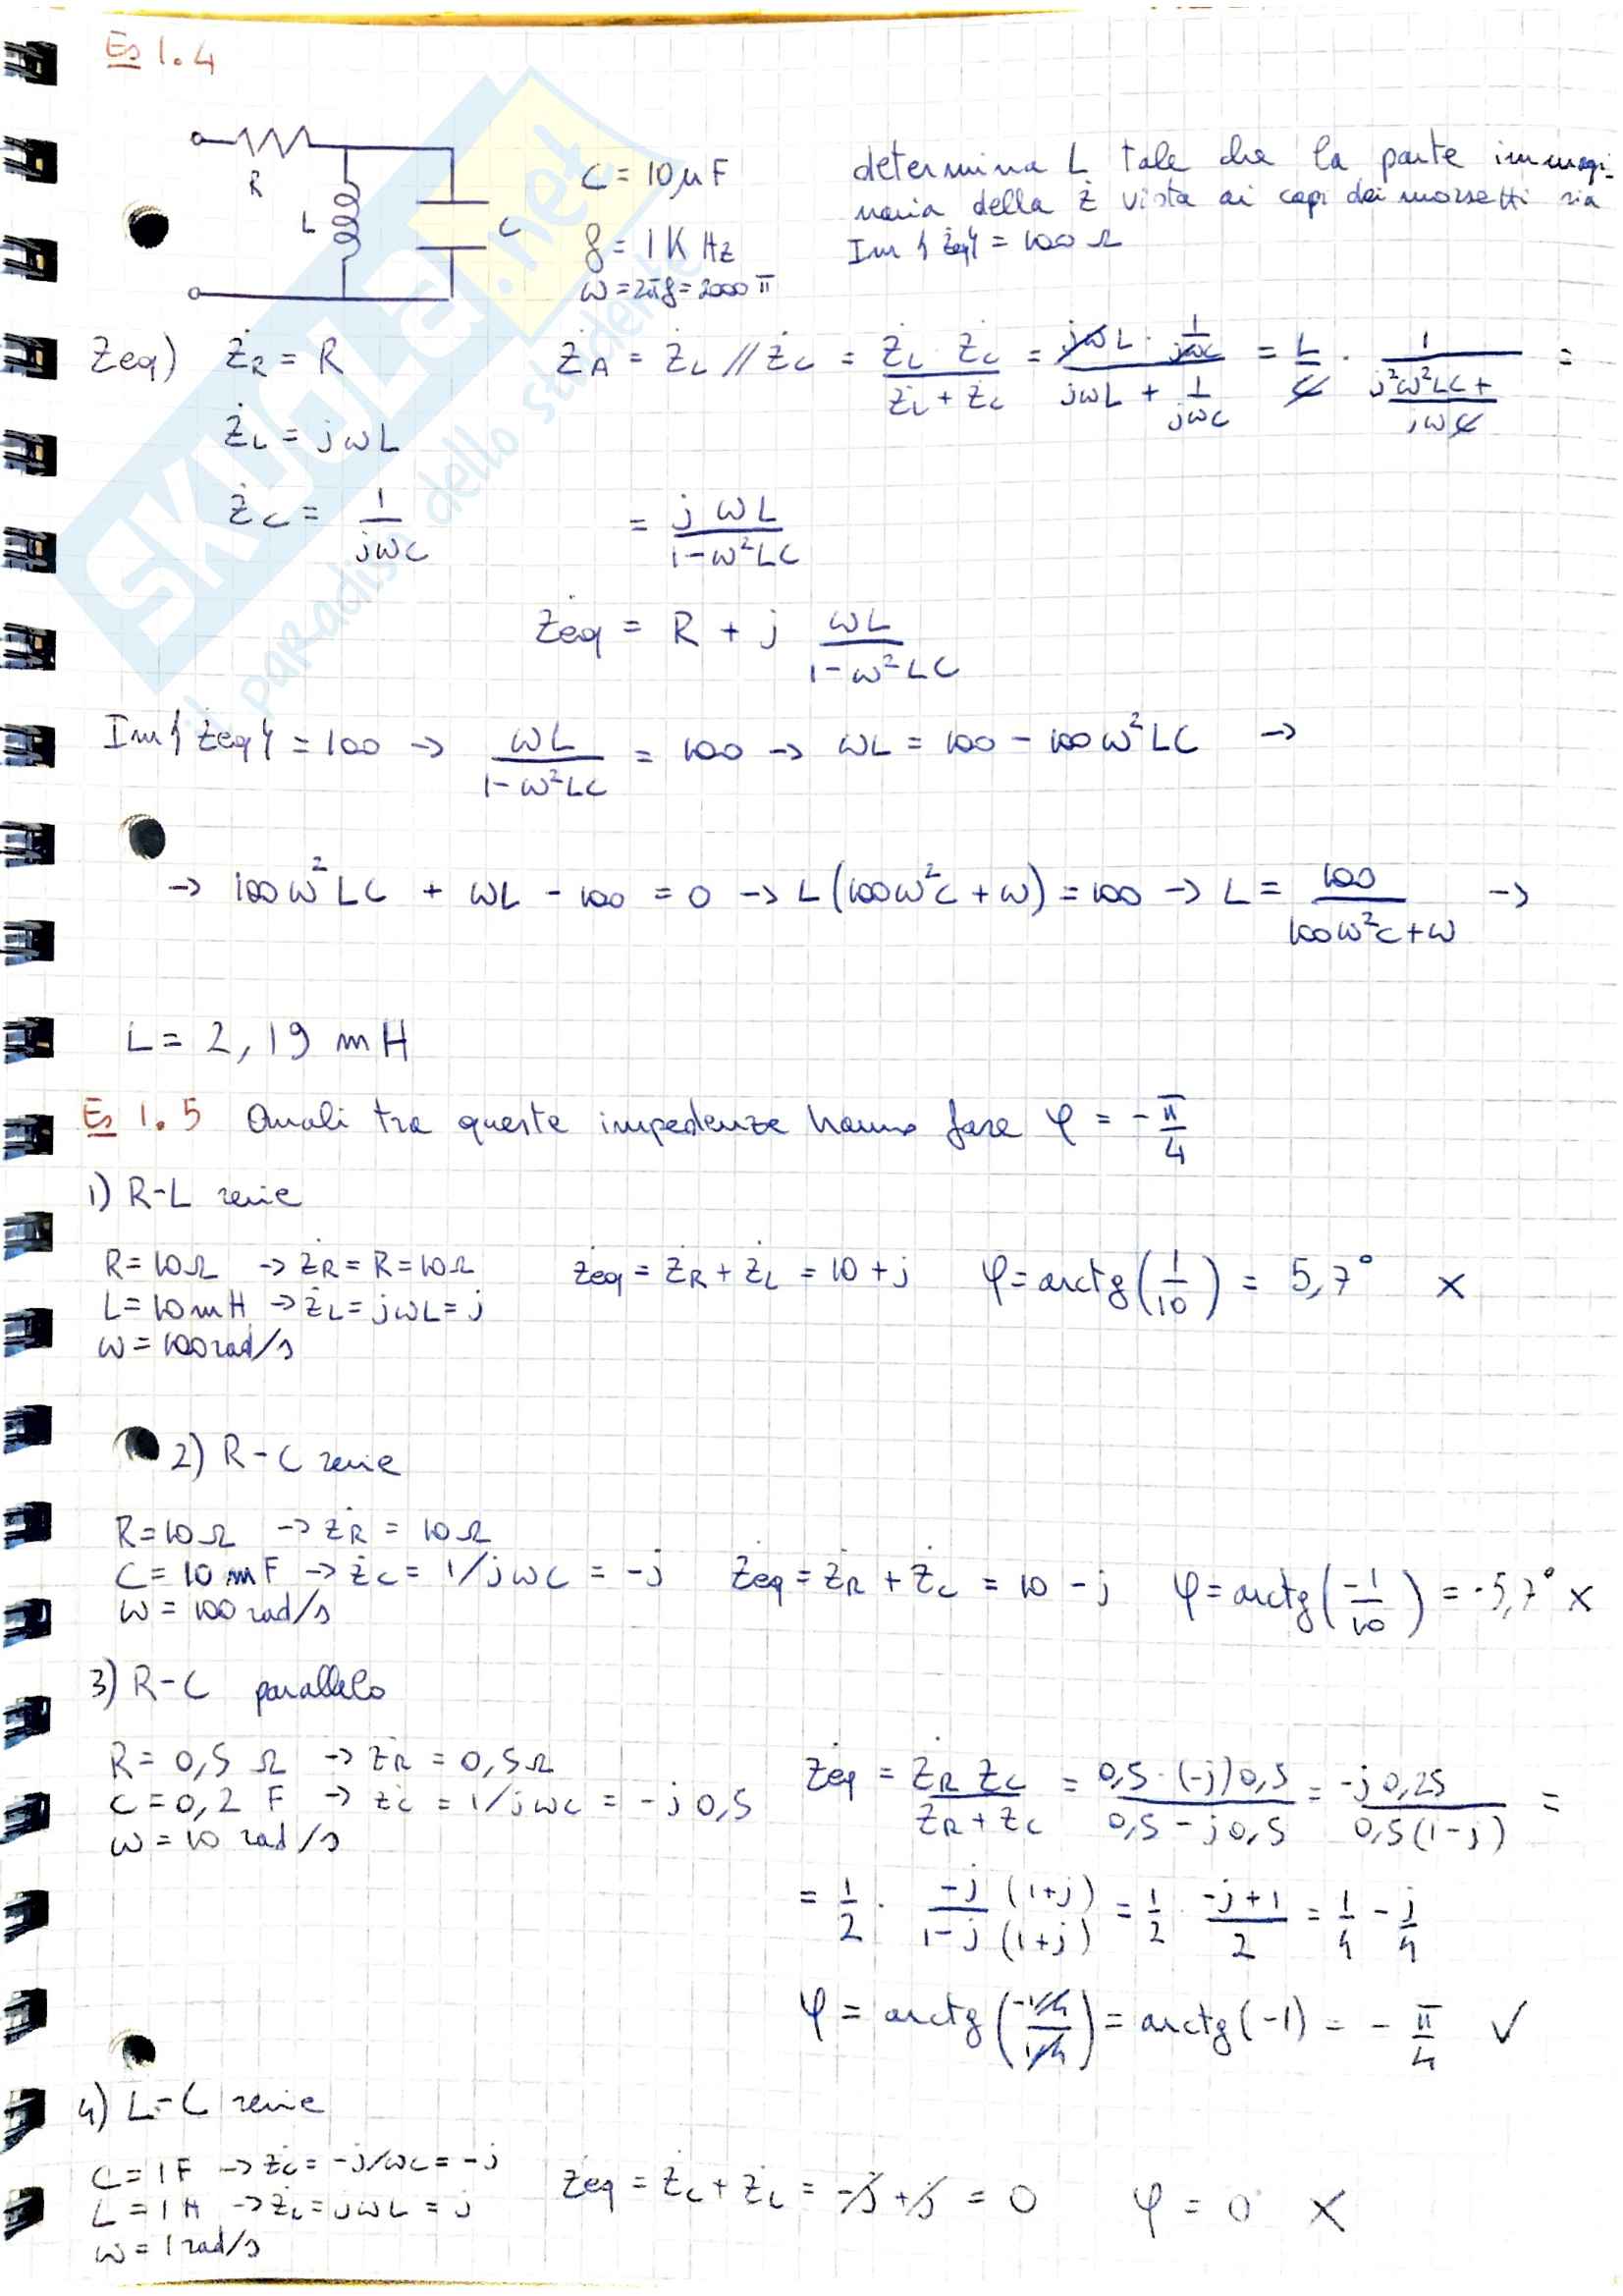 Es 1.4
R
L
C
C = 10 μF
f = 1K Hz
ω = 2πf = 2000 π
determina L tale che la parte immagi-
naria della Ż vista ai capi dei morsetti sia
Im{Żeq} = 100 Ω
Zeq) ŻR = R
ŻL = jωL
ŻC = 1/jωC
ŻA = ŻL // ŻC = ŻL · ŻC / ŻL + ŻC = jωL · 1/jωC / jωL + 1/jωC = L/C · 1 / j²ω²LC + / jωC =
= j ωL / 1-ω²LC
Żeq = R + j ωL / 1-ω²LC
Im{Żeq} = 100 → ωL / 1-ω²LC = 100 → ωL = 100 - 100ω²LC →
→ 100ω²LC + ωL - 100 = 0 → L(100ω²C + ω) = 100 → L = 100 / 100ω²C+ω →
L = 2,19 mH
Es 1.5 Quali tra queste impedenze hanno fase φ = -π/4
1) R-L serie
R = 10Ω → ŻR = R = 10Ω
L = 10mH → ŻL = jωL = j
ω = 100 rad/s
Żeq = ŻR + ŻL = 10 + j φ = arctg(1/10) = 5,7° X
2) R-C serie
R = 10Ω → ŻR = 10Ω
C = 10 mF → ŻC = 1/jωC = -j
ω = 100 rad/s
Żeq = ŻR + ŻC = 10 - j φ = arctg(-1/10) = -5,7° X
3) R-C parallelo
R = 0,5 Ω → ŻR = 0,5Ω
C = 0,2 F → ŻC = 1/jωC = -j 0,5
ω = 10 rad/s
Żeq = ŻR ŻC / ŻR + ŻC = 0,5 · (-j)0,5 / 0,5 - j0,5 = -j 0,25 / 0,5(1-j) =
= 1/2 · -j (1+j) / 1-j (1+j) = 1/2 · -j+1 / 2 = 1/4 - j/4
φ = arctg(-1/4 / 1/4) = arctg(-1) = - π/4 ✓
4) L-C serie
C = 1F → ŻC = -j/ωC = -j
L = 1H → ŻL = jωL = j
ω = 1 rad/s
Żeq = ŻC + ŻL = -j + j = 0 φ = 0 X
SKUOLA.net
il paradiso dello studente